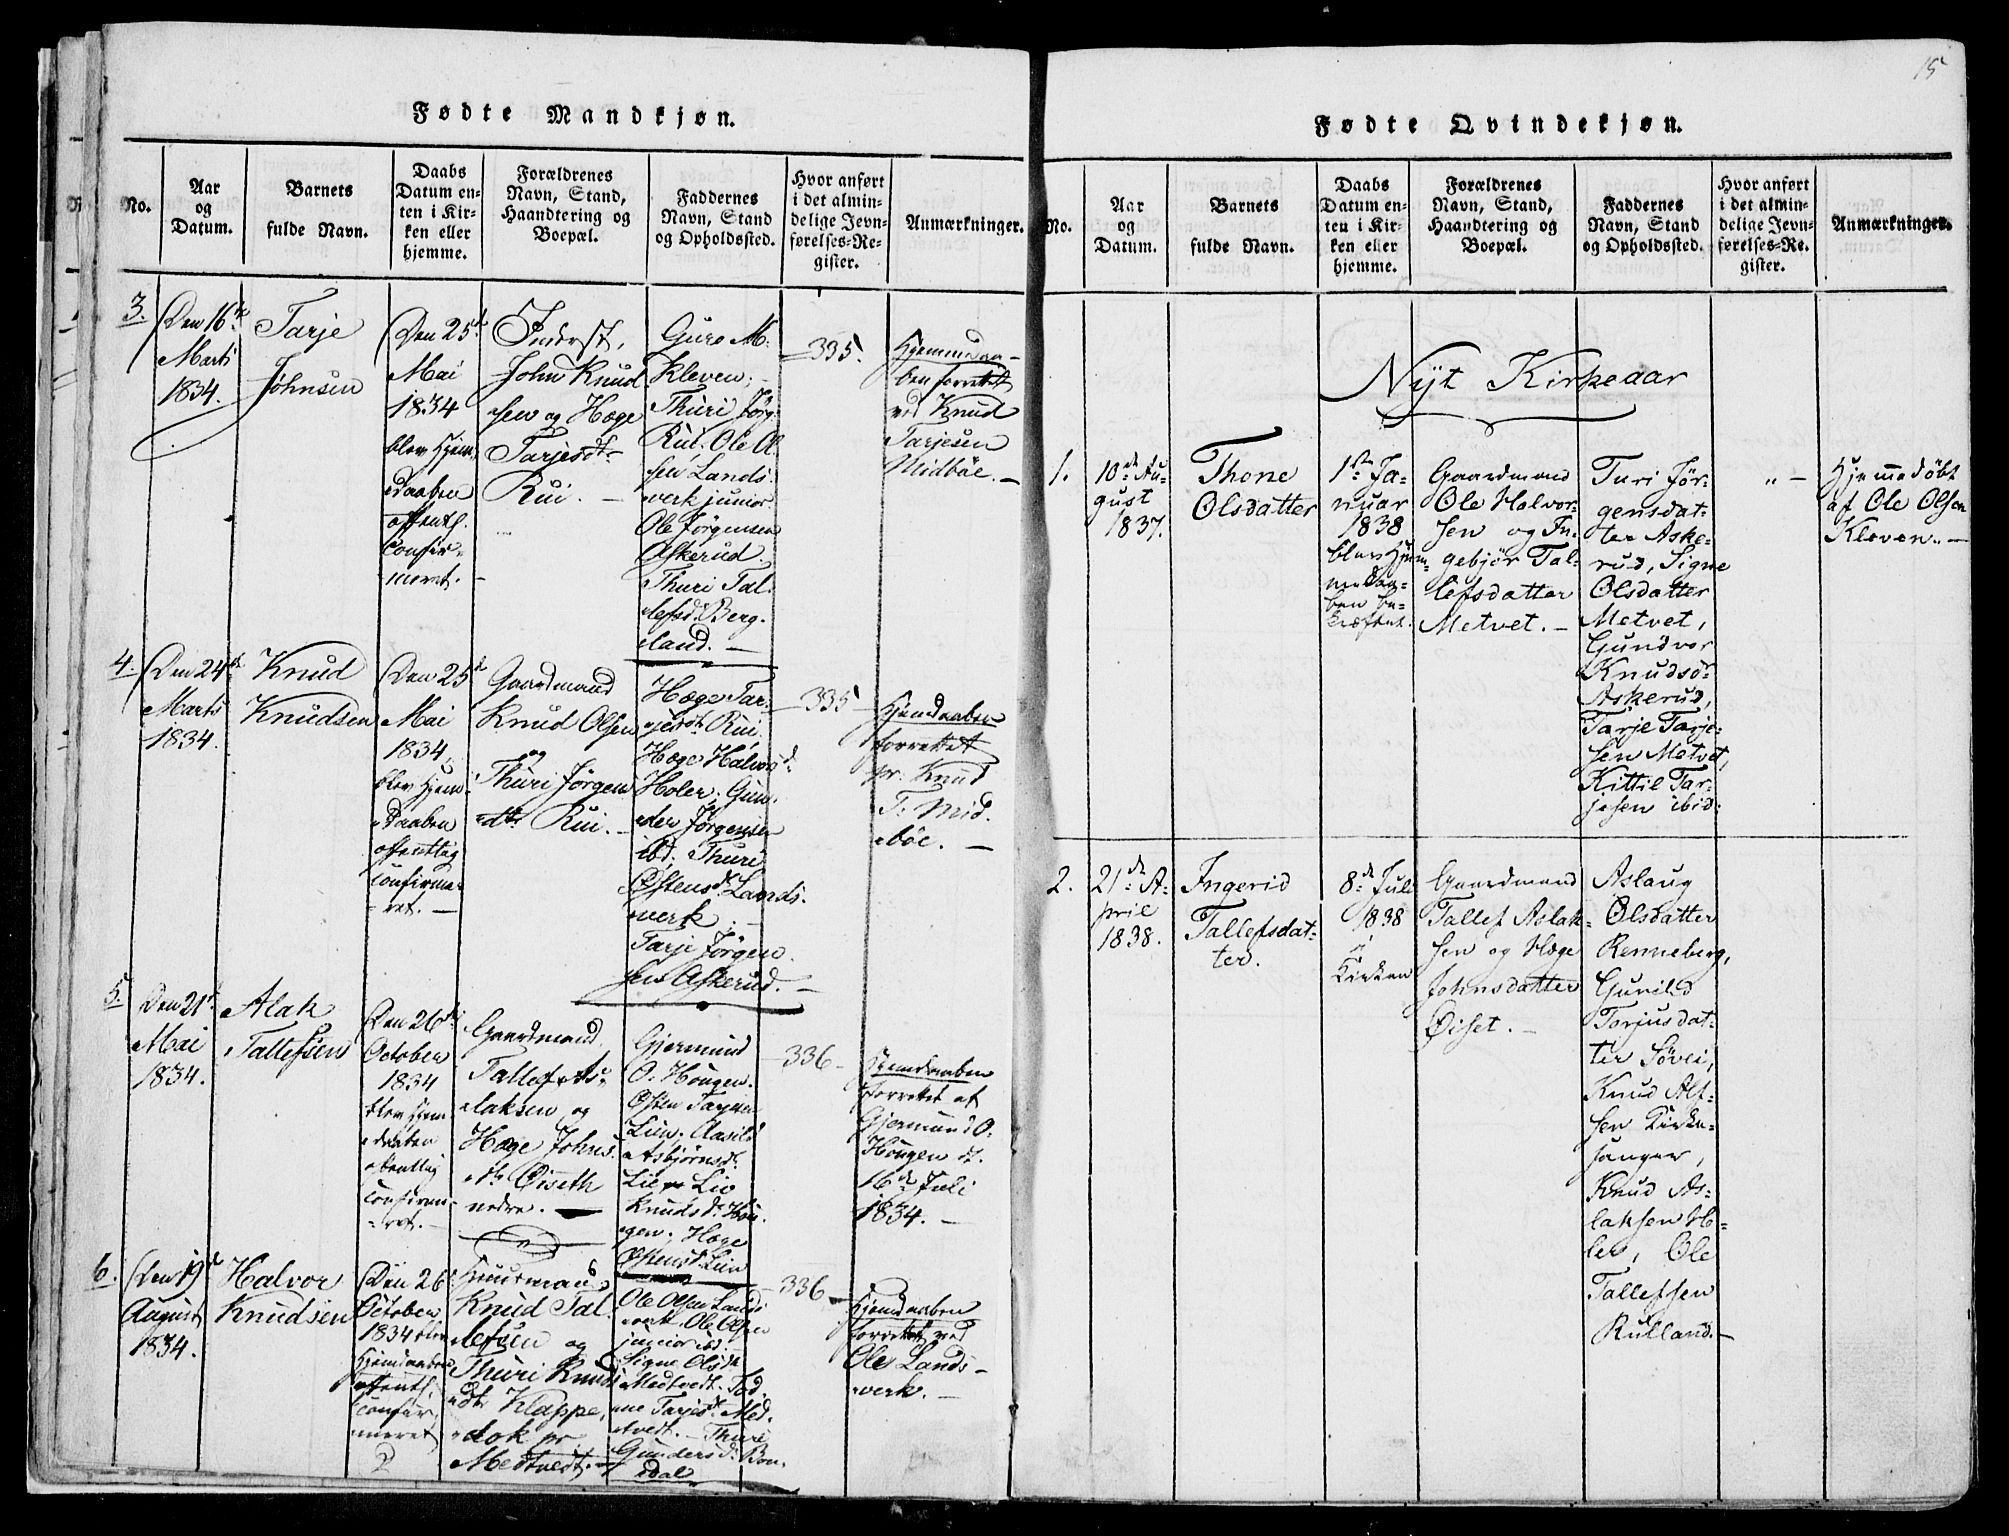 15
Fødte Mandkjøn.
No.
Aar
og
Datum.
Barnets
fulde Navn.
Daabs
Datum en-
ten i Kir-
ken eller
hjemme.
Forældrenes
Navn, Stand,
Haandtering og
Boepæl.
Faddernes
Navn, Stand
og Opholdssted.
Hvor anført
i det almin-
delige Jevn-
førelses-Re-
gister.
Anmærkninger.
3.
Den 16de
Marts
1834.
Tarje
Johnsen
Den 25de
Mai
1834
blev Hjem-
Daaben
offentl.
Confir-
meret.
Inderst,
John Knud
sen og Hæge
Tarjesdt
Rui. —
Guro M.
Kleven,
Thuri Jørg.
Rui. Ole O.
sen Lands-
verk junior
Ole Jørgensen
Askerud.
Thuri Tal-
lefsd. Berg-
land. —
335.
Hjemmedaa-
ben forrettet
ved Knud
Tarjesen
Midbøe. —
4.
Den 24de
Marts
1834.
Knud
Knudsen
Den 25d
Mai
1834
blev Hjem-
Daaben
offentlig
Confirme-
ret. —
Gaardmand
Knud Olsen
og
Thuri Jørgens
dtr Rui. —
Hæge Tar-
jesdt Rui.
Hæge Halvorsd.
Holer. Gun-
der Jørgensen
ibd; Thuri
Østensdt Lands-
verk. —
Tarje Jørgen-
sen Askerud. —
335
Hjemdaaben
forrettet
pr. Knud
T. Mid-
bøe. —
5.
Den 21d
Mai
1834.
Alak
Tallefsen
Den 26de
October
1834
blev Hjem-
daaben
offentlig
Confirme-
ret. —
Gaardmand
Tallef As-
laksen og
Hæge Johns-
dtr Øiseth
nedre. —
Gjermund
O. Hougen.
Østen Tarjesen
Lien, Aasild
Asbjørnsdt.
Lie, Liv
Knudsd. Hou-
gen, Hæge
Østensdt Lien
336
Hjemdaaben
forrettet af
Gjermund O.
Hougen d.
16de Juli
1834. —
6.
Den 19d
August
1834.
Halvor
Knudsen
Den 26
October
1834 blev
Hjemdaaben
offentl.
Confir-
meret
Huusmand
Knud Tal-
lefsen og
Thuri Knuds
dtr Klappe,
Medtvedt. —
Ole Olsen Lands-
verk. Ole Olsen
junior ibd.
Signe Olsdt
Medtvedt.
Tarjesdt. Med-
tvedt. — Thuri
Gundersd. Bon-
dal
336
Hjemdaaben
forrettet ved
Ole Lands-
verk. —
Fødte Qvindekjøn.
No.
Aar
og
Datum.
Barnets
fulde Navn.
Daabs
Datum en-
ten i Kir-
ken eller
hjemme.
Forældrenes
Navn, Stand,
Haandtering og
Boepæl.
Faddernes
Navn, Stand
og Opholdssted.
Hvor anført
i det almin-
delige Jevn-
førelses-Re-
gister.
Anmærkninger.
Nyt Kirkeaar
1.
10de Au-
gust
1837.
Thone
Olsdatter
1ste Ja-
nuar
1838
blev Hjem-
medaa-
ben be-
kræftet.
Gaardmand
Ole Halvor-
sen og In-
gebjør Tal-
lefsdatter
Metvet. —
Turi Jør-
gensdat-
ter Aske-
rud, Signe
Olsdatter
Metvet,
Gundvor
Knudsd.
Askerud,
Tarje Tarje-
sen Metvet,
Kittil Tar-
jesen ibid.
" —
Hjemmedøbt
af Ole Olsen
Kleven. —
2.
21de A-
pril
1838.
Ingerid
Tallefsdat-
ter.
8de Juli
1838
i
Kirken
Gaardmand
Tallef Aslak-
sen og Hæge
Johnsdatter
Øiset. —
Aslaug
Olsdatter
Renneberg,
Gunild
Torjusdat-
ter Søvei,
Knud Alf-
sen Kirke-
sanger,
Knud As-
laksen Ho-
ler, Ole
Tallefsen
Rulland. —